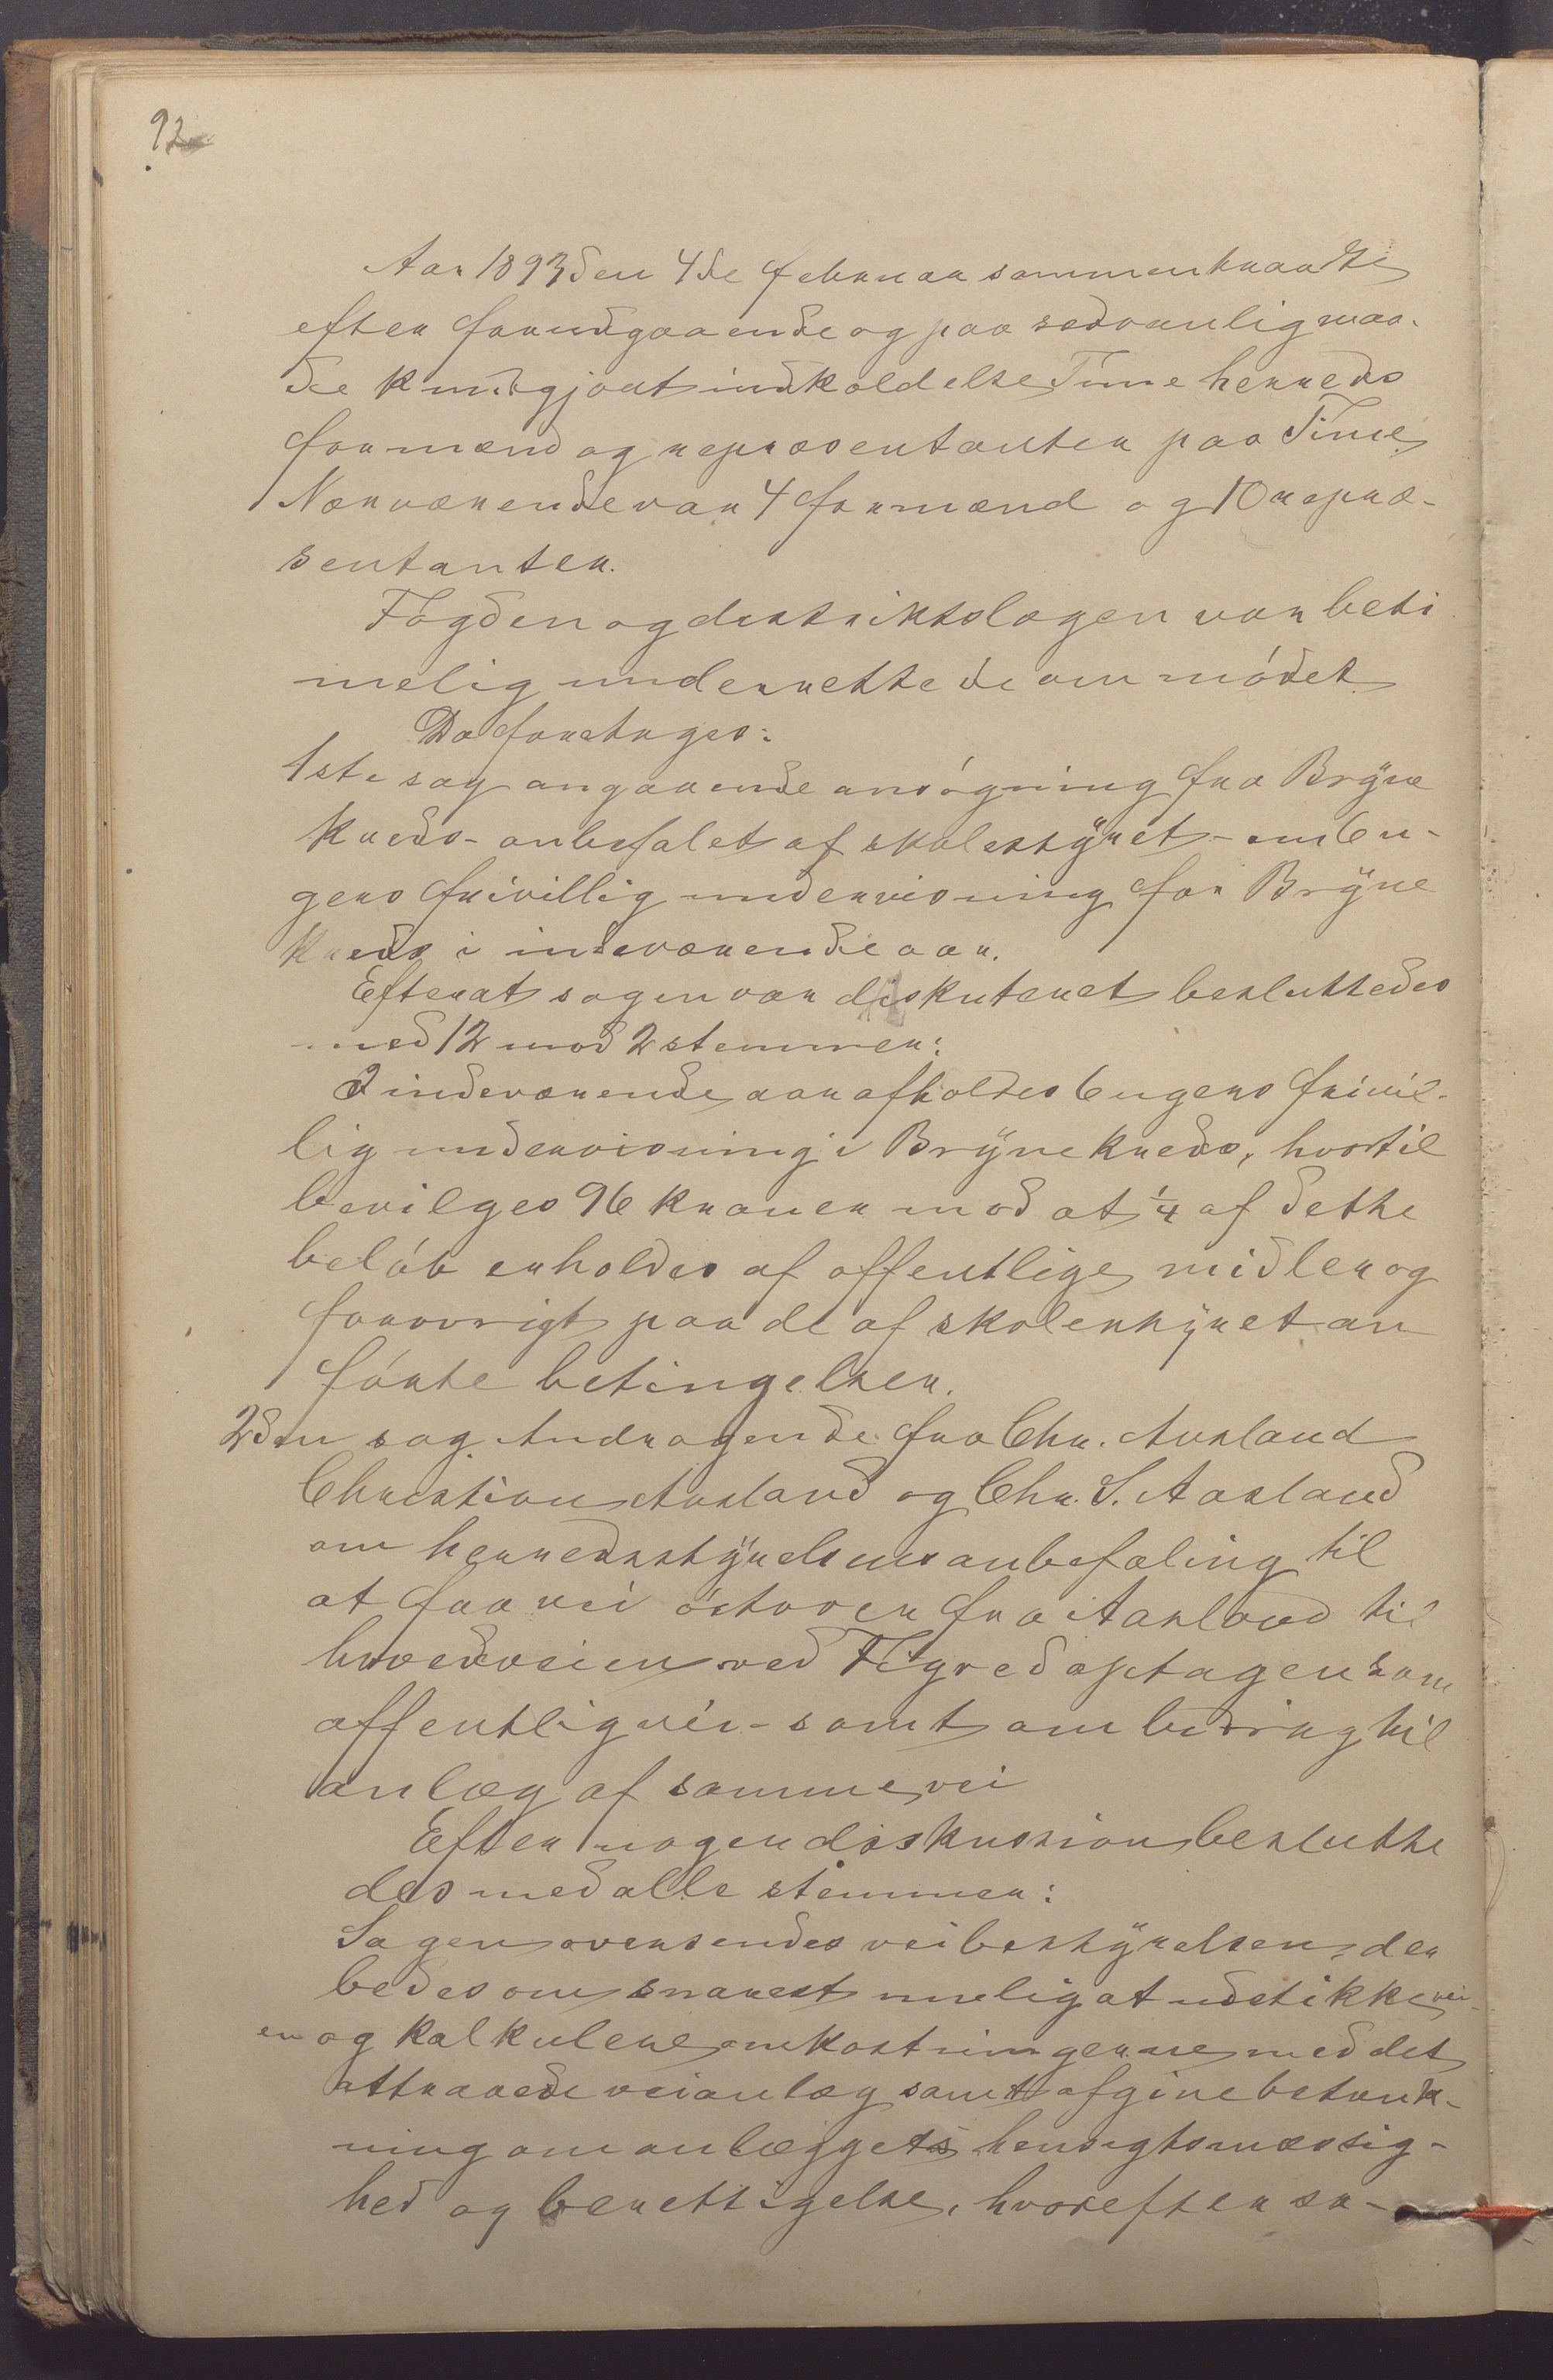 92
Aar 1893 den 4de februar sammentraadte
efter forudgaaende og paa sedvanlig maa-
de kundgjort indkaldelse Time herreds
formænd og repræsentanter paa Time
Nærværende var 4 formænd og 10 repræ-
sentanter.
Fogden og distriktslægen var beti
melig underrettede om mødet
Da foretoges:
1ste sag angaaende ansøgning fra Bryne
kreds - anbefalet af skolestyret - om 6 u-
gers frivillig undervisning for Bryne
kreds i indeværende aar.
Efterat sagen var diskuteret besluttedes
med 12 mod 2 stemmer:
I indeværende aar afholdes 6 ugers frivil-
lig undervisning i Bryne kreds, hvortil
bevilges 96 kroner mod at ¼ af dette
beløb erholdes af offentlige midler og
forøvrigt paa de af skolestyret an
førte betingelser.
2den sag Andragende fra Chr. Aasland
Christian Aasland og Chr. S. Aasland
om herredsstyrelsens anbefaling til
at faa vei østover fra Aasland til
hovedveien ved Tegred optagen som
offentlig vei - samt om bidrag til
anlæg af samme vei
Efter nogen diskussion beslutte
des med alle stemmer:
Sagen oversendes veibestyrelsen, der
bedes om snarest mulig at udstikke vei-
en og kalkulere omkostningerne med det
attraaede veianlæg samt afgive betænk-
ning om anlæggets hensigtsmæssig-
hed og berettigelse, hvorefter sa-